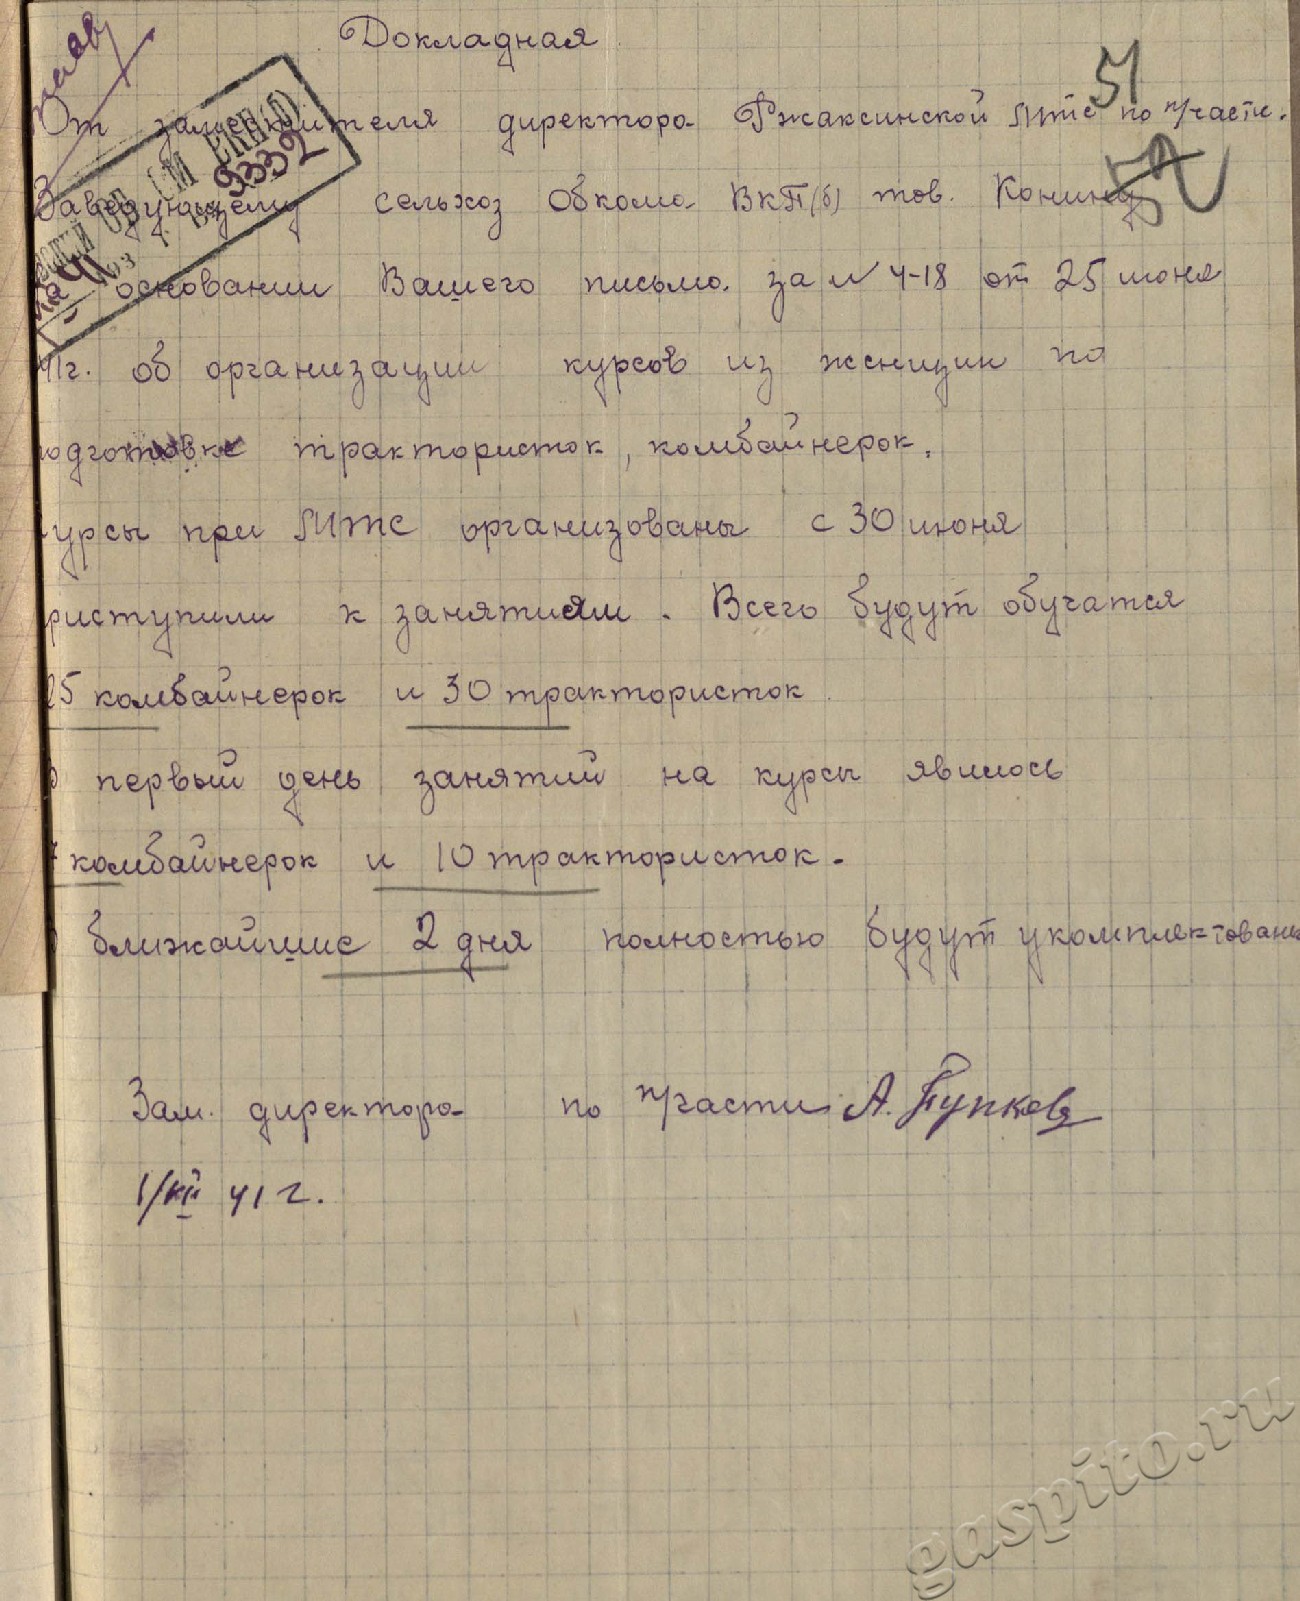 Докладная
51
От заместителя директора Ржаксинской МТС по п/части.
Заведующему сельхоз Обкома ВКП(б) тов. Конину
9332
На основании Вашего письма за № 4-18 от 25 июня
41г. об организации курсов из женщин по
подготовке трактористок, комбайнерок.
курсы при МТС организованы с 30 июня
приступили к занятиям. Всего будут обучатся
25 комбайнерок и 30 трактористок
В первый день занятий на курсы явилось
7 комбайнерок и 10 трактористок.
В ближайшие 2 дня полностью будут укомплектованы
Зам. директора по п/части А. Пупков
1/VII 41 г.
gaspito.ru